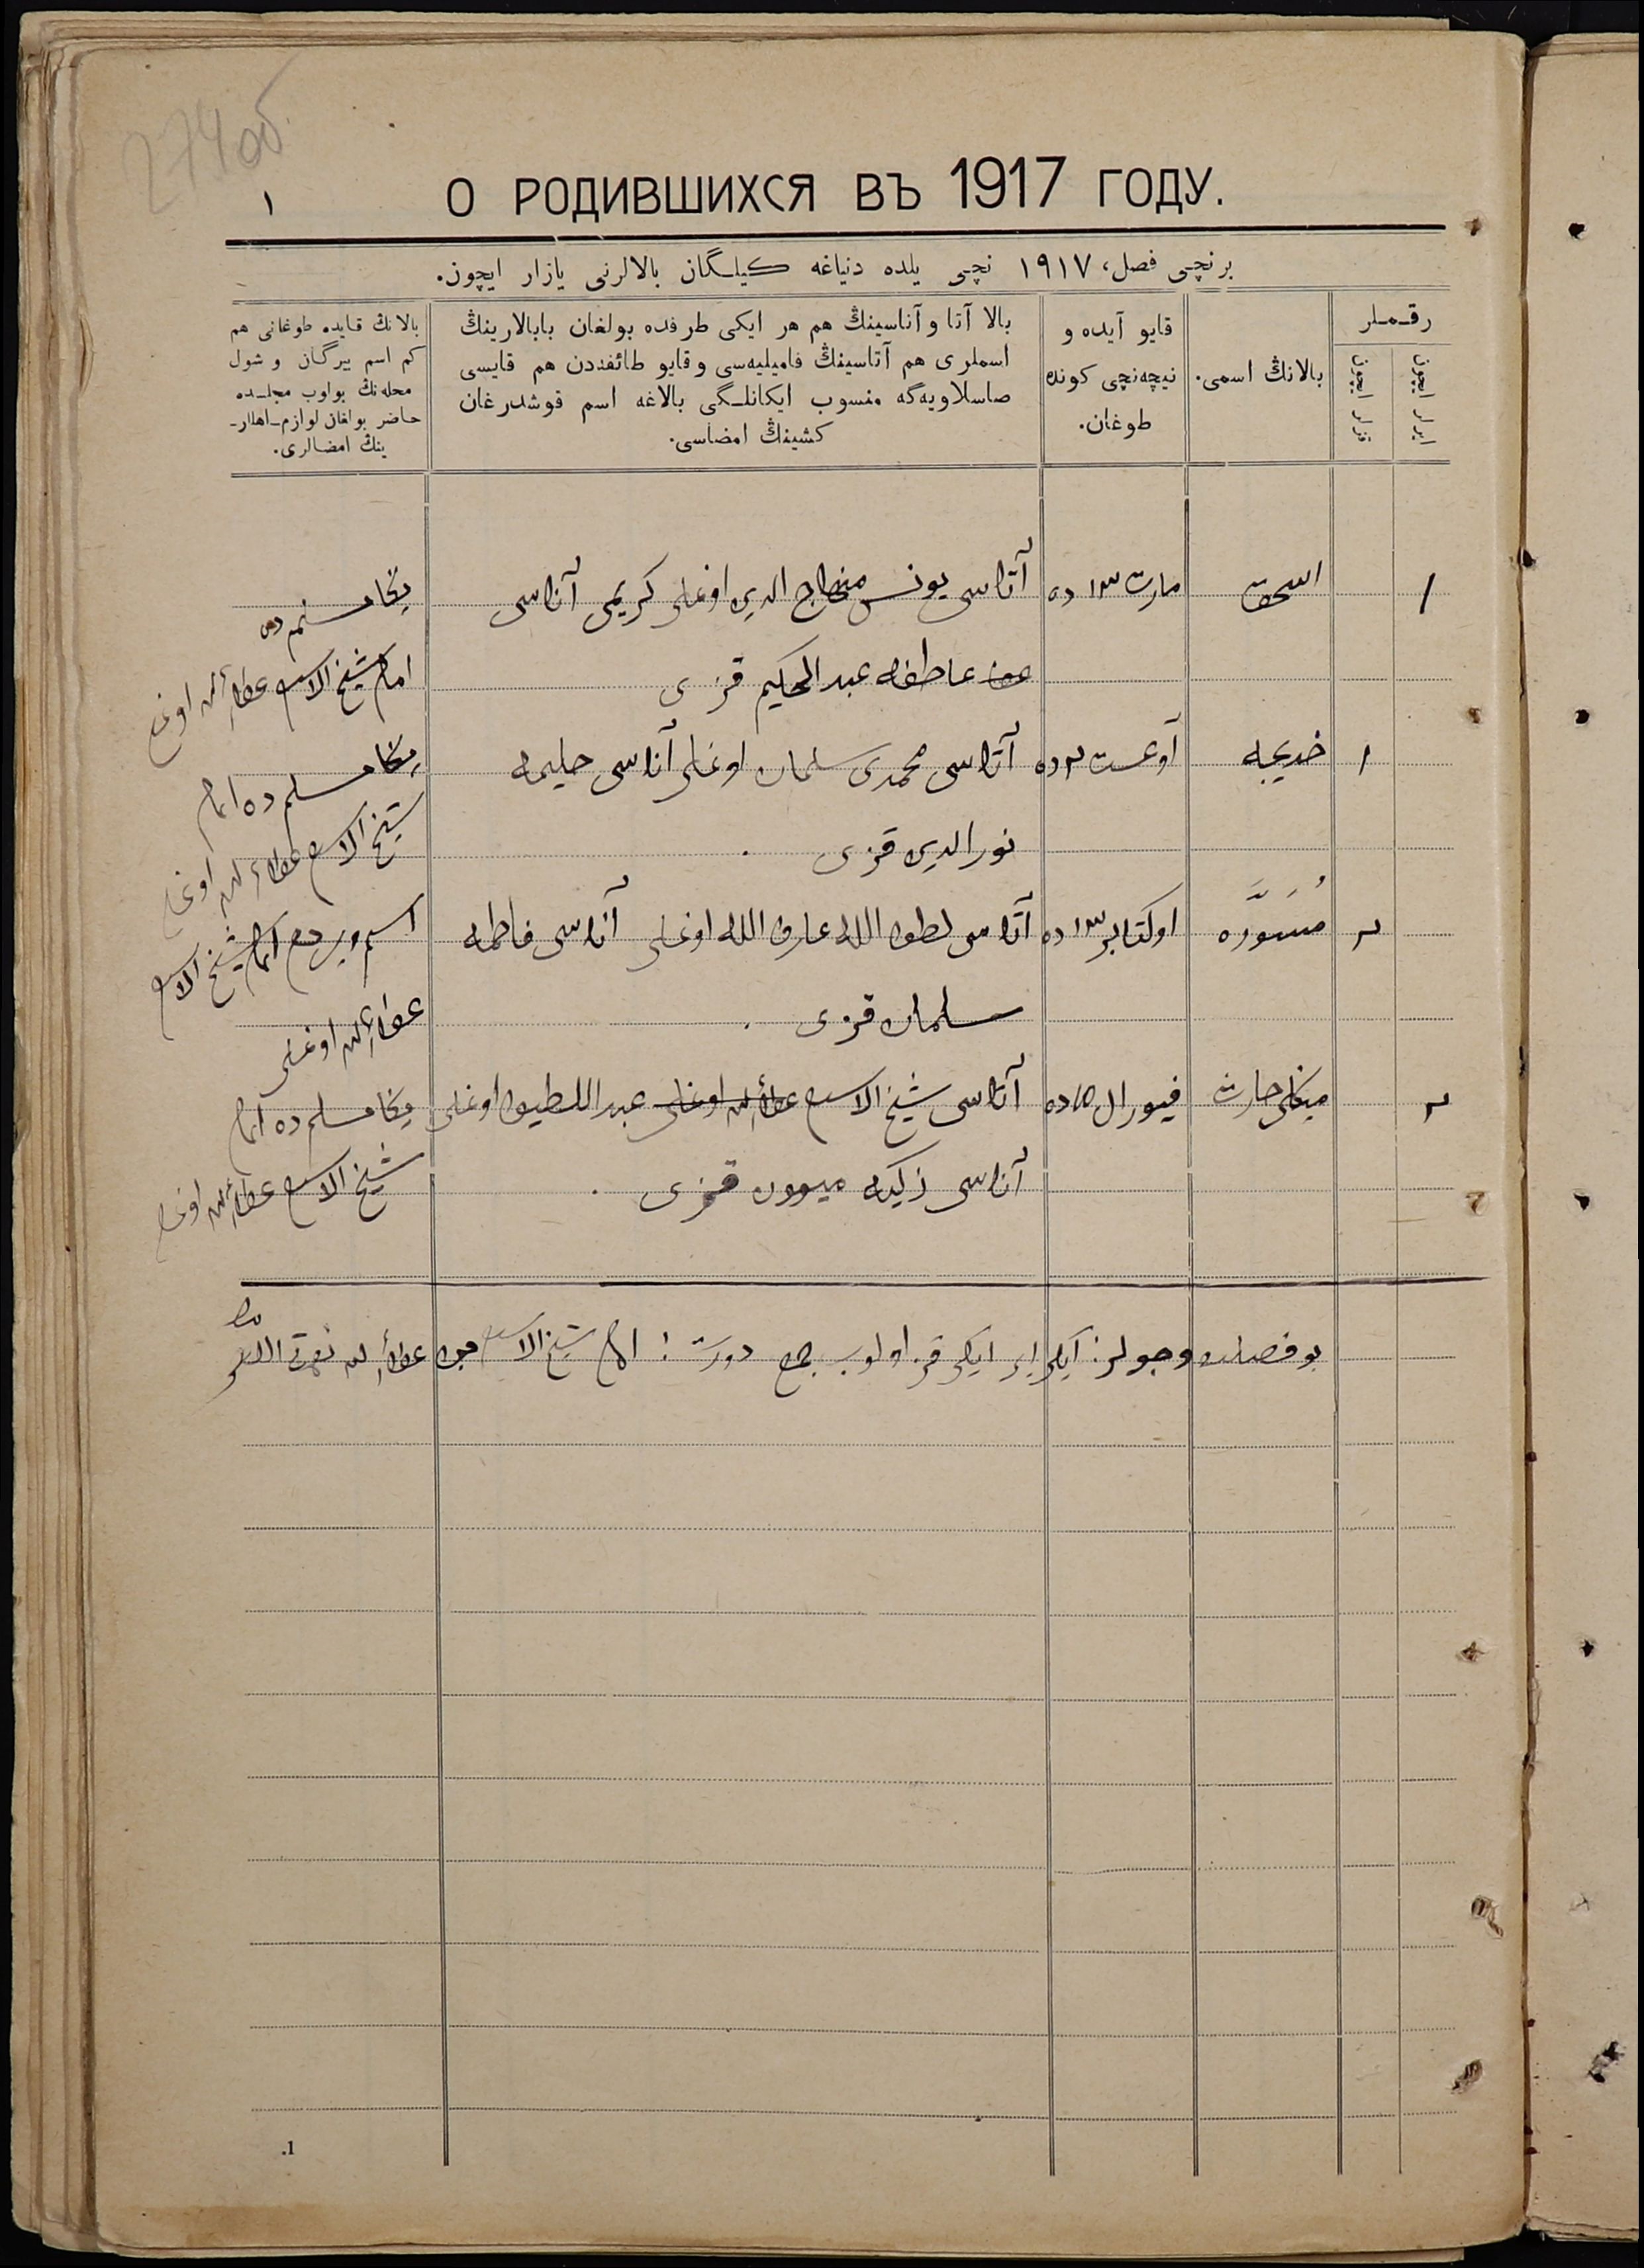 274об
О РОДИВШИХСЯ ВЪ 1917 ГОДУ.
١
برنچی فصل، ١٩١٧ نچی یلده دنیاغه کیلـگان بالالرنی یازار ایچون.
رقـملر
ایرلر ایچون
قزلر ایچون
بالانڭ اسمی.
قایو آیده و
نیچه‌نچی کونده
طوغان.
بالا آتا و آناسینڭ هم هر ایکی طرفده بولغان بابالارینڭ
اسملری هم آتاسینڭ فامیلیه‌سی و قایو طائفه‌دن هم قایسی
صاسلاویه‌گه منسوب ایکانلـگی بالاغه اسم قوشدرغان
کشینڭ امضاسی.
بالانڭ قایده طوغانی هم
کم اسم بیرگان و شول
محله‌نڭ بولوب مجلـده
حاضر بولغان لوازم‌ـ‌اهلارـ
ینڭ امضالری.
١ اسحق مارت ١٣ ده آتاسی یونس منهاج الدین اوغلی کریمی آناسی
عاطفه عبدالحکیم قزی
امام شیخ الاسلام عطاءالله اوغلی
١ خدیجه آوغست ٢ ده آتاسی محمدی سلمان اوغلی آناسی حلیمه
نورالدین قزی .
شیخ الاسلام عطاءالله اوغلی
٢ مُسَوَّره اوکتابر ١٣ ده آتاسی لطف الله عارف الله اوغلی آناسی فاطمه
اسم ویردم امام شیخ الاسلام
سلمان قزی .
عطاءالله اوغلی
٢ فیورال ١٥ ده آتاسی شیخ الاسلام عطاءالله اوغلی عبداللطیف اوغلی
آناسی ذکیه قزی .
شیخ الاسلام عطاءالله اوغلی
بو فصلده ایکی ایر ایکی قز اولوب جمع دورت ؛ امام شیخ الاسلام بن عطاءالله
1.